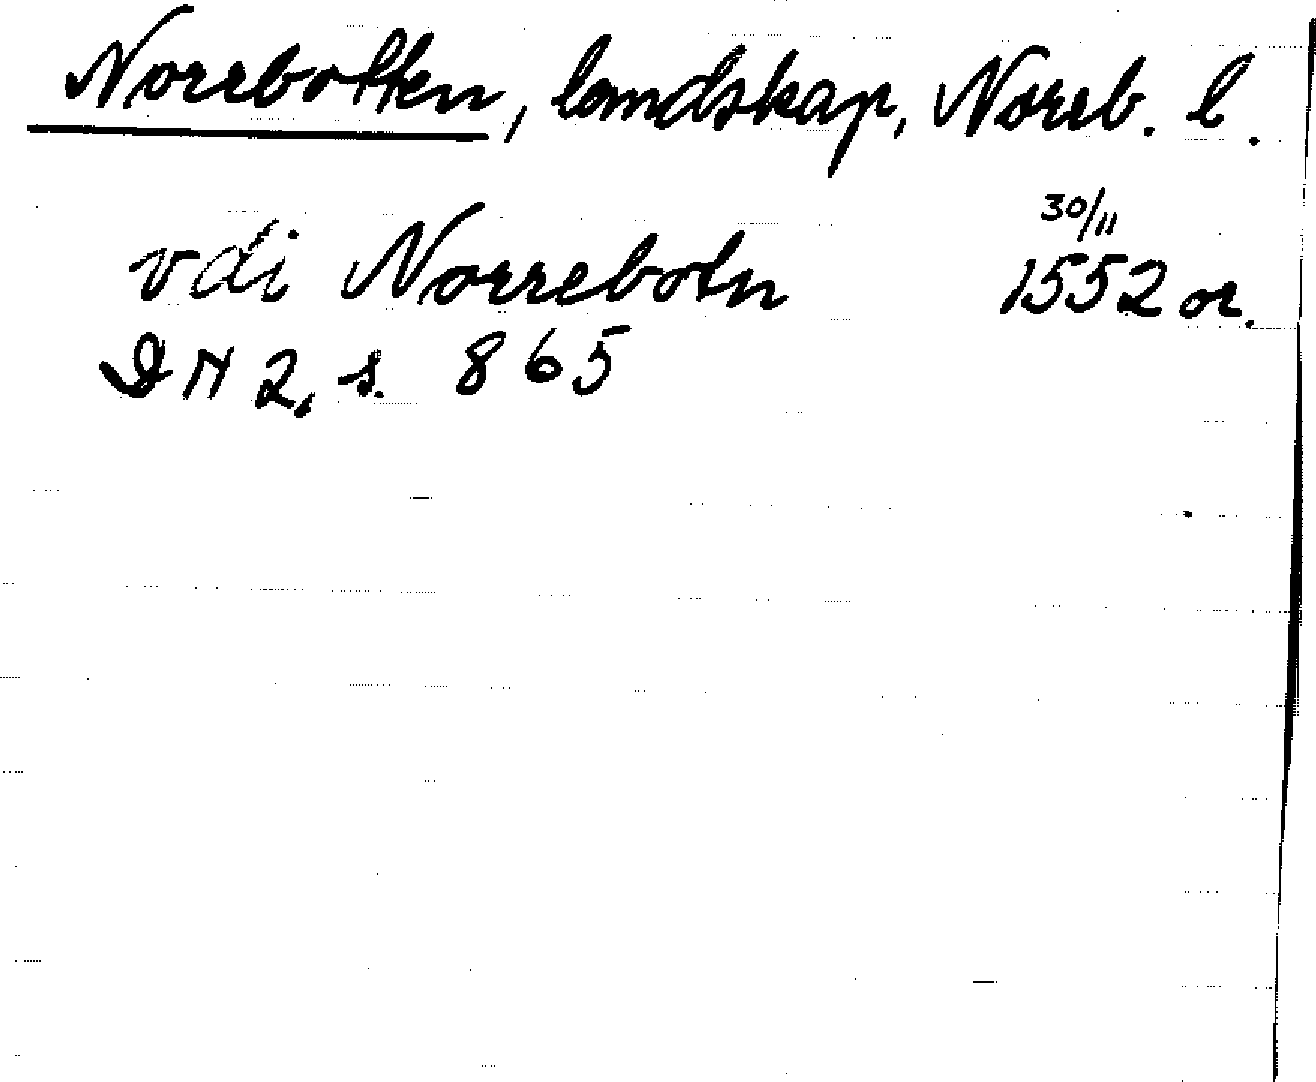 Norrbotten, landskap, Norrb. l.
vdi Norrebotn 30/11 1552 or.
DN 2, s. 865